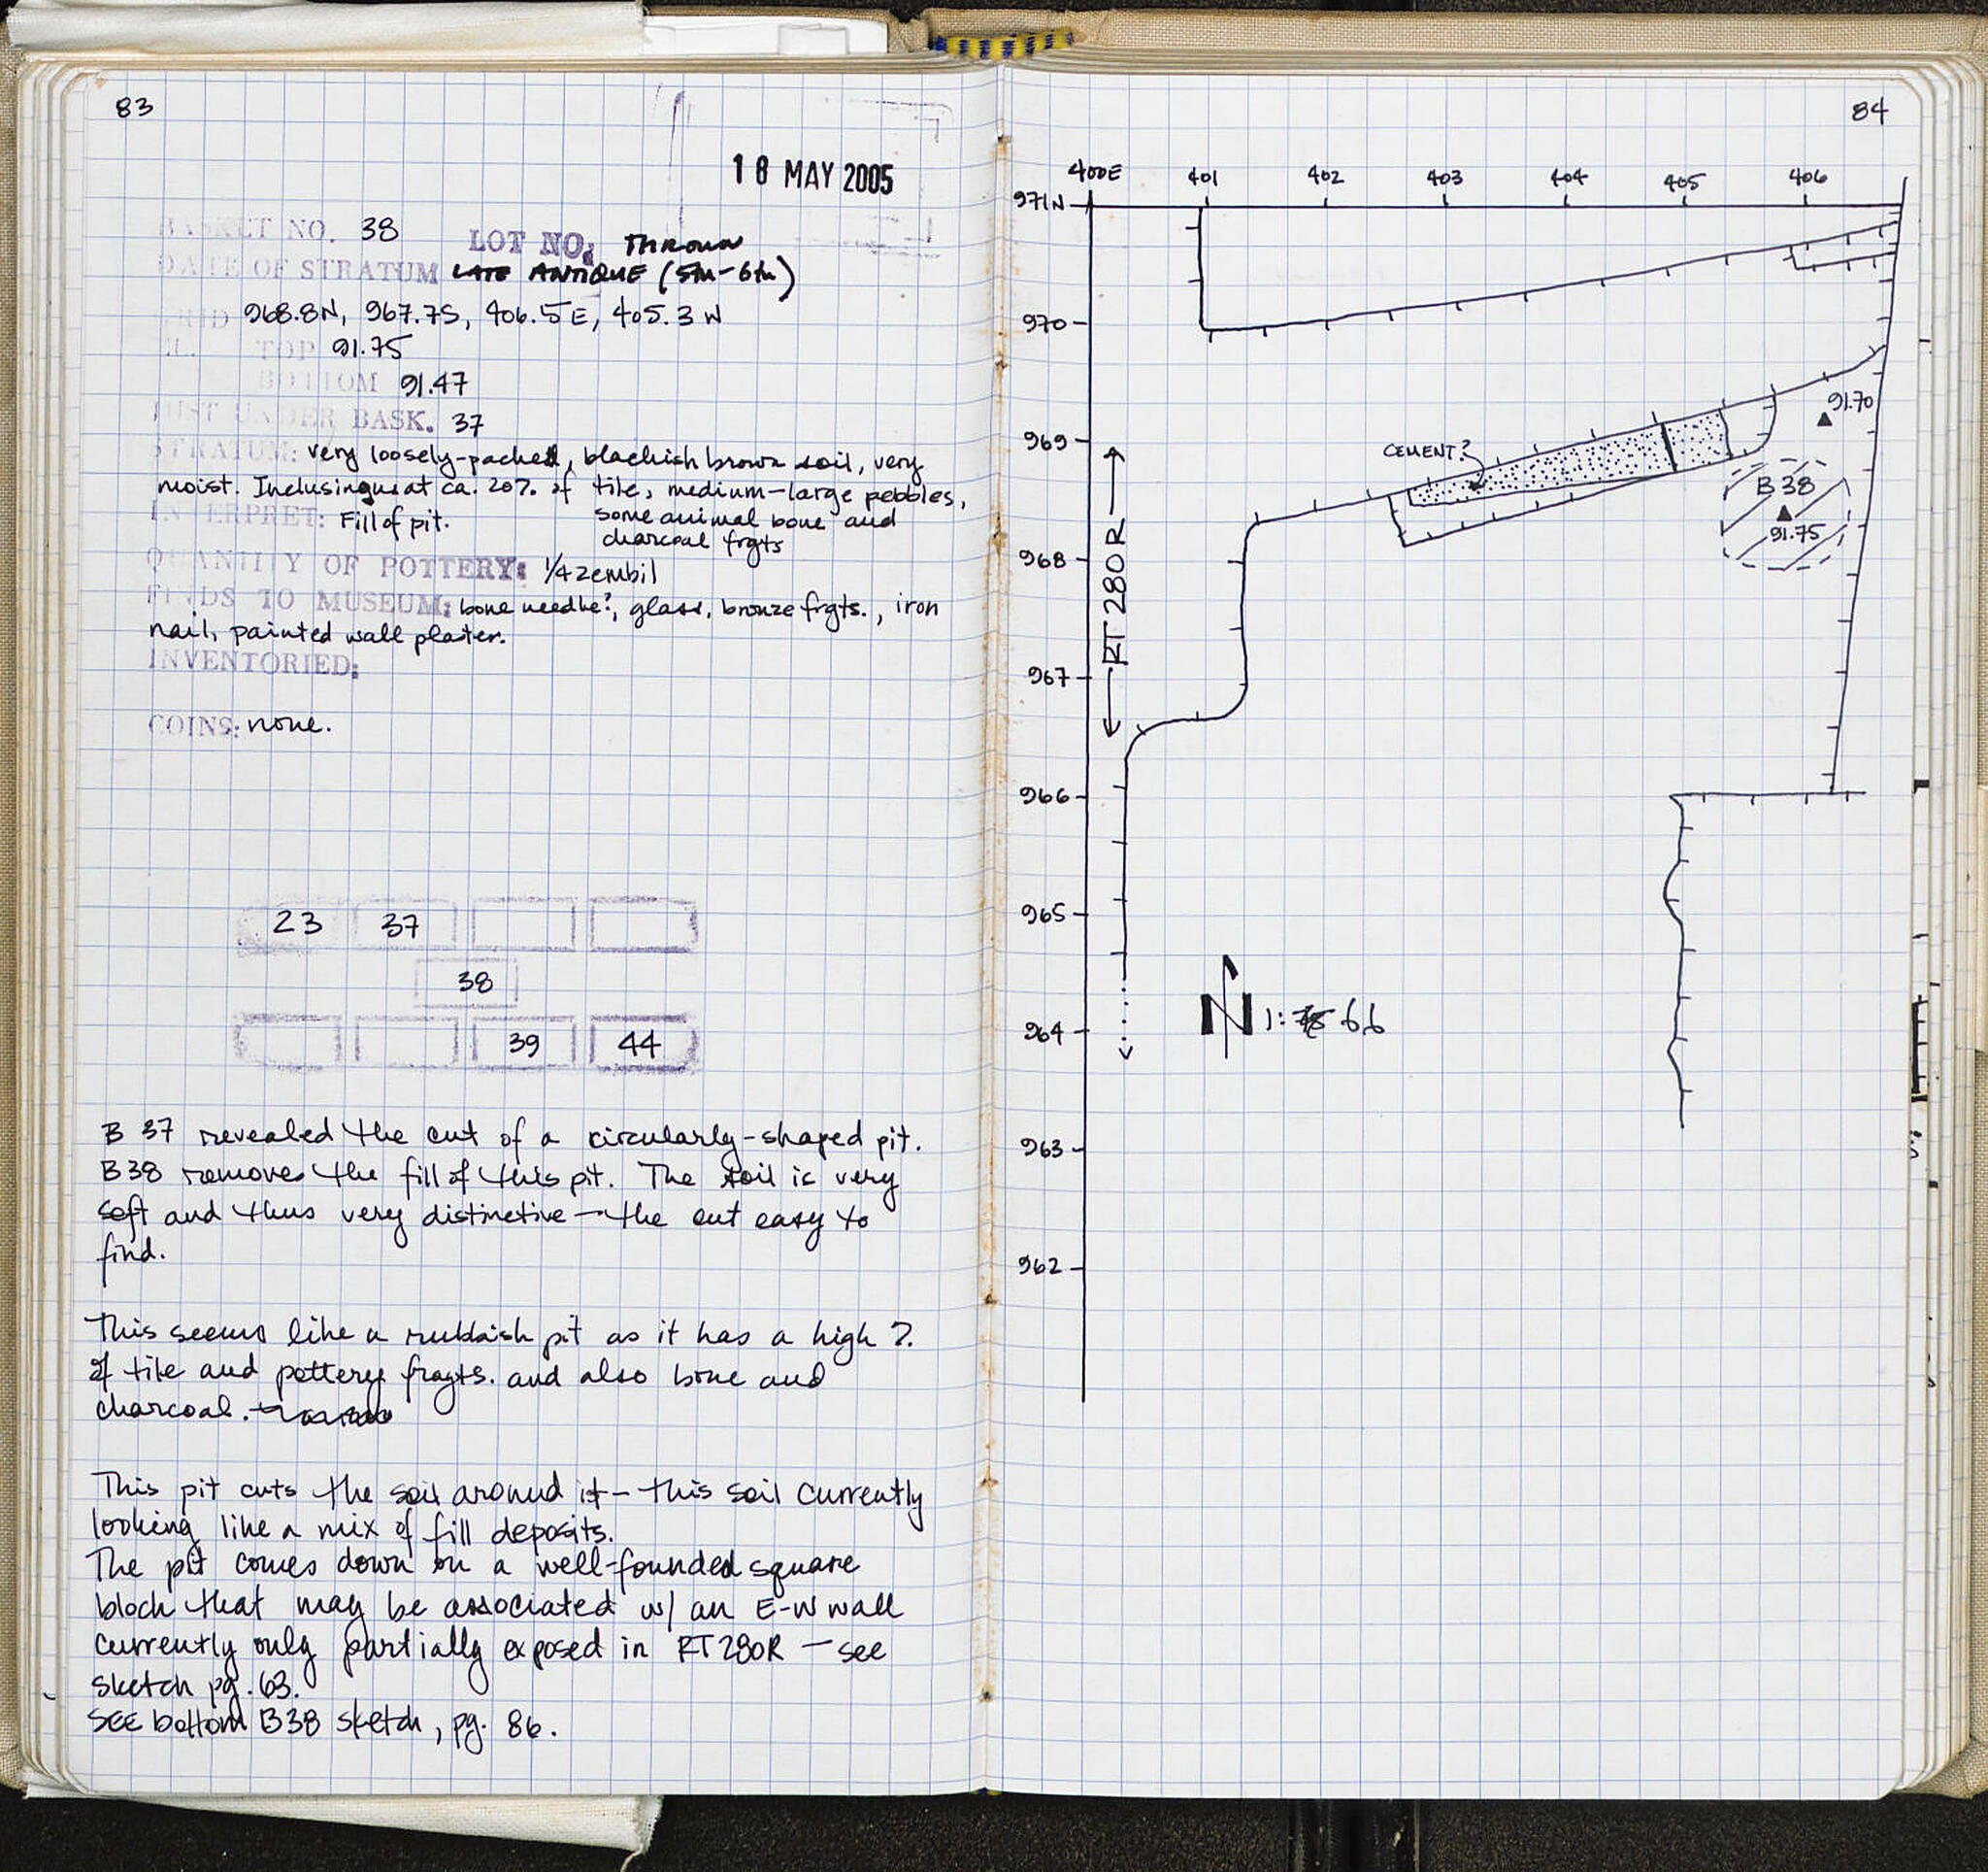 83
18 MAY 2005
BASKET NO. 38 LOT NO: THROWN
DATE OF STRATUM LATE ANTIQUE (5th-6th)
GRID 968.8N, 967.7S, 406.5E, 405.3W
EL. TOP 91.75
BOTTOM 91.47
JUST UNDER BASK. 37
STRATUM: very loosely-packed, blackish brown soil, very
moist. Inclusions at ca. 20% of tile, medium-large pebbles,
some animal bone and
charcoal frgts
INTERPRET: Fill of pit.
QUANTITY OF POTTERY: 1/4 zembil
FINDS TO MUSEUM: bone needle?, glass, bronze frgts., iron
nail, painted wall plaster.
INVENTORIED:
COINS: none.
23 37
38
39 44
B 37 revealed the cut of a circularly-shaped pit.
B38 removes the fill of this pit. The soil is very
soft and thus very distinctive - the cut easy to
find.
This seems like a rubbish pit as it has a high %
of tile and pottery fragts. and also bone and
charcoal.
This pit cuts the soil around it - this soil currently
looking like a mix of fill deposits.
The pit comes down on a well-founded square
block that may be associated w/ an E-W wall
currently only partially exposed in RT280R - see
sketch pg. 63.
SEE bottom B38 sketch, pg. 86.
84
400E 401 402 403 404 405 406
971N
970
969
968
967
966
965
964
963
962
RT 280 R
CEMENT?
91.70
B 38
91.75
N 1: 66